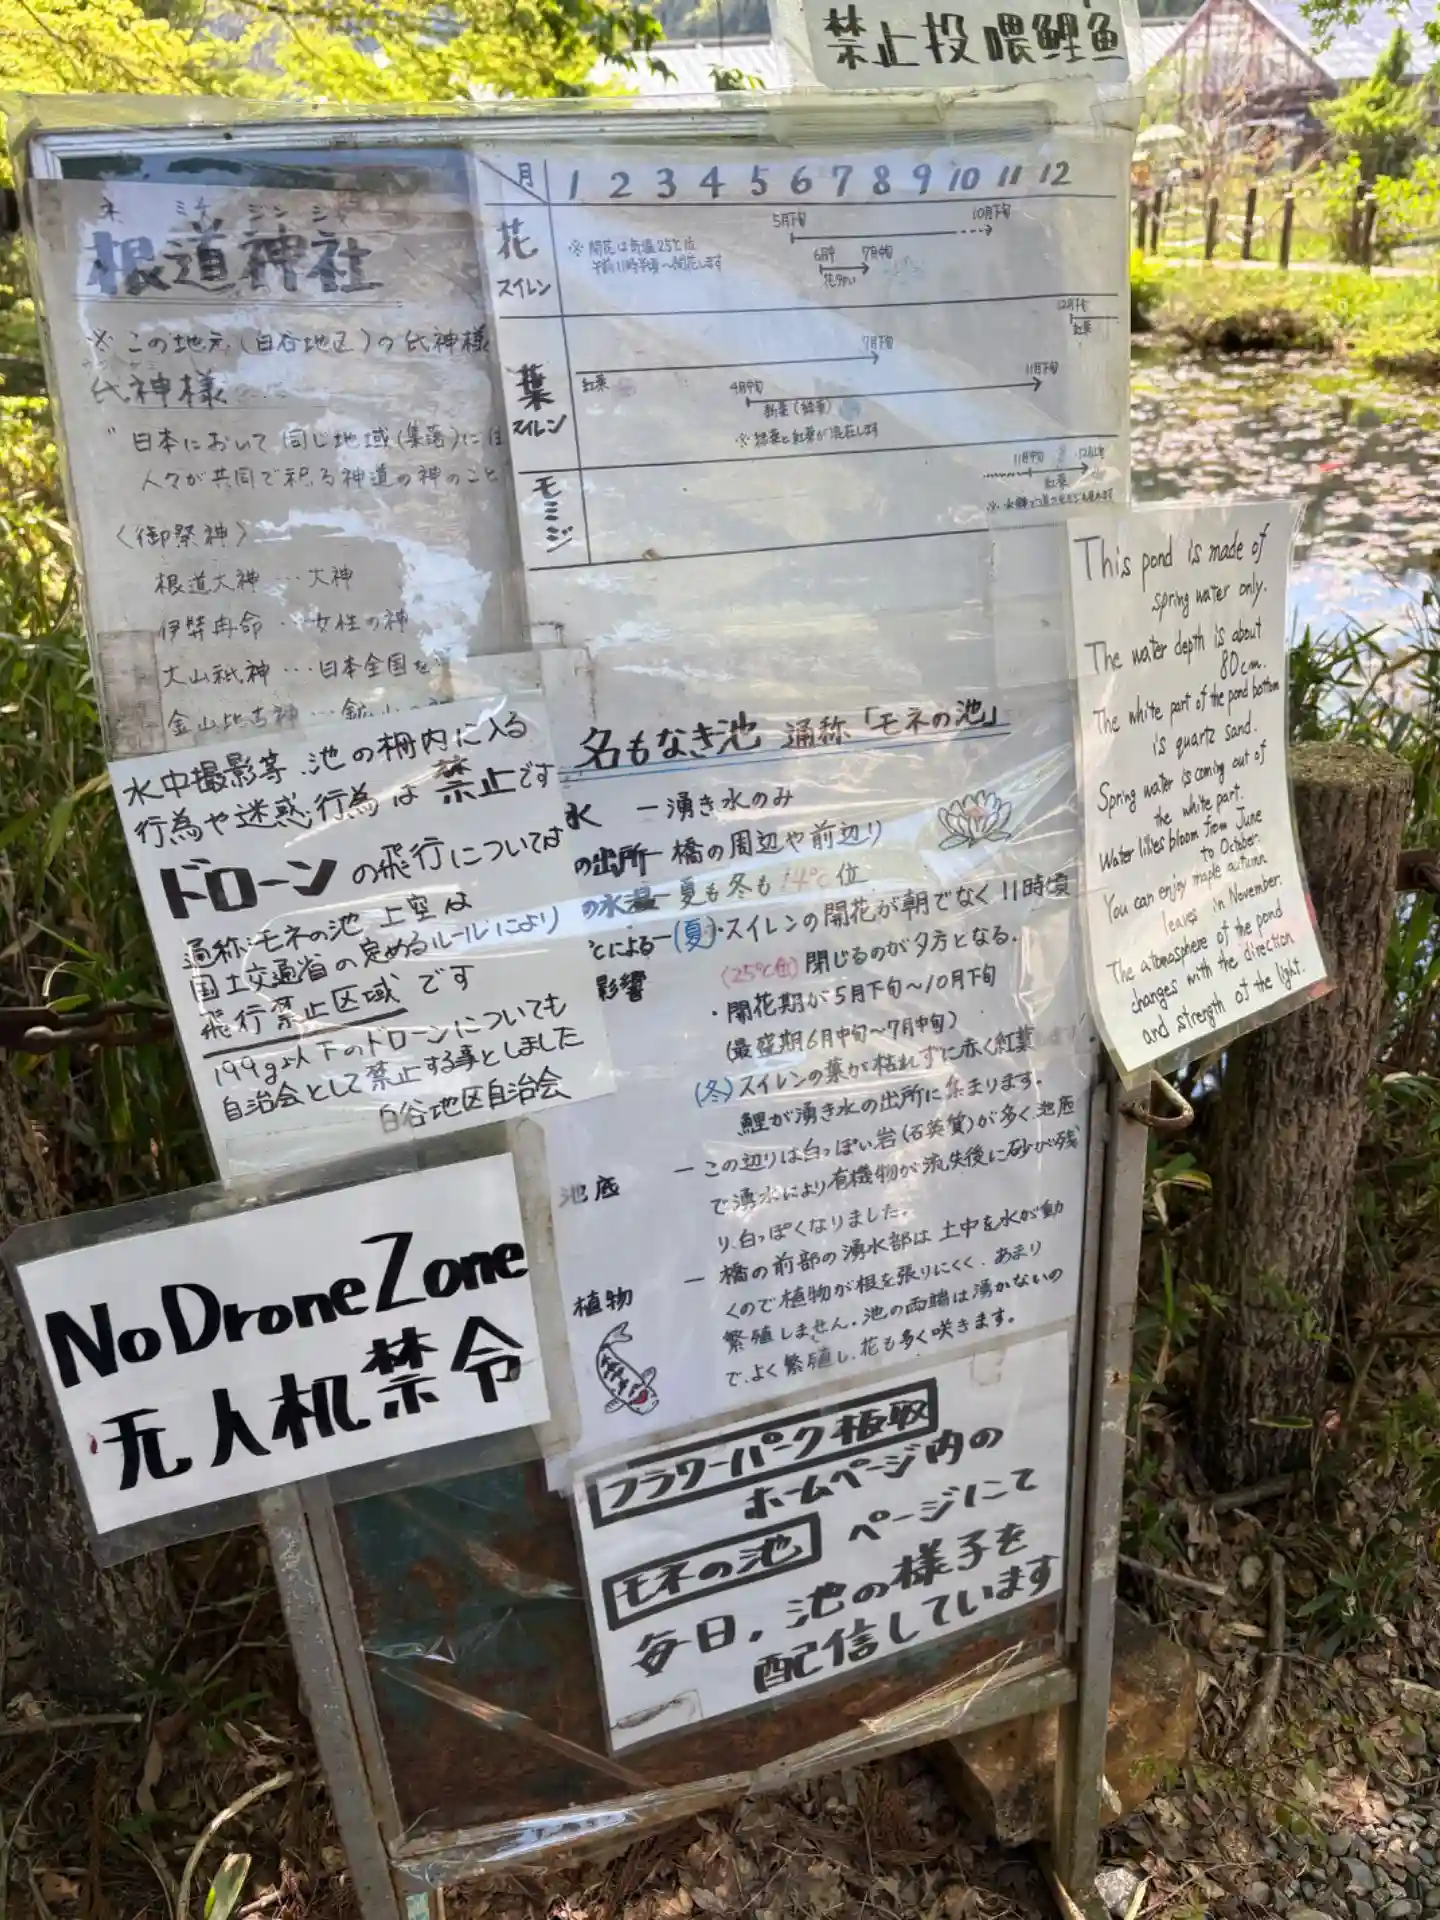 禁止投喂鲤鱼
ネ ミチ ジン ジャ
根道神社
※この地元(白谷地区)の氏神様
氏神様
"日本において同じ地域(集落)に住
人々が共同で祀る神道の神のこと
〈御祭神〉
根道大神 … 大神
伊弉冉命 … 女性の神
大山祇神 … 日本全国を
金山比古神 … 鉱山の神
月 1 2 3 4 5 6 7 8 9 10 11 12
花
スイレン
※開花は気温25℃位
午前11時半頃〜開花します
5月下旬
10月下旬
6月中
7月中旬
葉
スイレン
紅葉
7月下旬
4月中旬
11月下旬
新葉(緑葉)
※緑葉と紅葉が混在します
紅葉
モミジ
11月中旬
紅葉
水中撮影等、池の柵内に入る
行為や迷惑行為は禁止です
ドローンの飛行については
通称:モネの池 上空は
国土交通省の定めるルールにより
飛行禁止区域です
199g以下のドローンについても
自治会として禁止する事としました
白谷地区自治会
No Drone Zone
无人机禁令
名もなき池 通称「モネの池」
水 ー湧き水のみ
の出所ー橋の周辺や前辺り
の水温ー夏も冬も14℃位
とによるー(夏)・スイレンの開花が朝でなく11時頃
影響 (25℃位)閉じるのが夕方となる.
・開花期が5月下旬〜10月下旬
(最盛期6月中旬〜7月中旬)
(冬)スイレンの葉が枯れずに赤く紅葉
鯉が湧き水の出所に集まります.
池底 ーこの辺りは白っぽい岩(石英質)が多く、池底
で湧水により有機物が流失後に砂が残
り、白っぽくなりました.
植物 ー橋の前部の湧水部は土中を水が動
くので植物が根を張りにくく、あまり
繁殖しません.池の両端は湧かないの
で、よく繁殖し、花も多く咲きます.
フラワーパーク板取
ホームページ内の
モネの池 ページにて
毎日、池の様子を
配信しています
This pond is made of
spring water only.
The water depth is about
80cm.
The white part of the pond bottom
is quartz sand.
Spring water is coming out of
the white part.
Water lilies bloom from June
to October.
You can enjoy maple autumn
leaves in November.
The atomasphere of the pond
changes with the direction
and strength of the light.